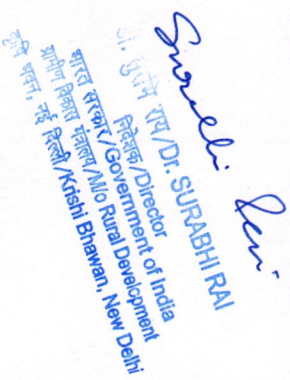 Surabhi Rai
डॉ. सुरभि राय/Dr. SURABHI RAI
निदेशक/Director
भारत सरकार/Government of India
ग्रामीण विकास मंत्रालय/M/o Rural Development
कृषि भवन, नई दिल्ली/Krishi Bhawan, New Delhi